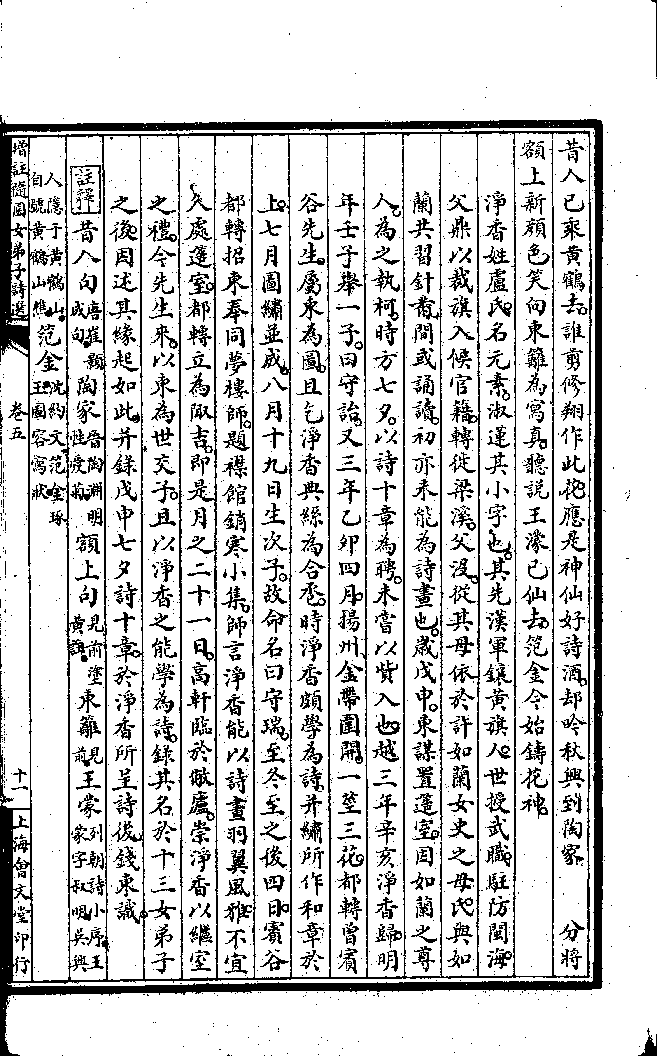 昔人已乘黃鶴去誰剪修翔作此花應是神仙好詩酒却吟秋興到陶家　分將
額上新顏色笑向東籬為寫真聽說王濛已仙去范金今始鑄花神
淨香姓盧氏名元素淑蓮其小字也其先漢軍鑲黃旗人世授武職駐防閩海
父鼎以裁旗入候官籍轉徙梁溪父沒從其母依於許如蘭女史之母氏與如
蘭共習針黹間或誦讀初亦未能為詩畫也歲戊申東謀置簉室因如蘭之尊
人為之執柯時方七夕以詩十章為聘未嘗以貲入也越三年辛亥淨香歸明
年壬子舉一子曰守詒又三年乙卯四月揚州金帶圍開一莖三花都轉曾賓
谷先生屬東為圖且乞淨香與絲為合卺時淨香頗學為詩并繡所作和章於
上七月圖繡並成八月十九日生次子故命名曰守瑞至冬至之後四日賓谷
都轉招東奉同夢樓師題襟館銷寒小集師言淨香能以詩畫羽翼風雅不宜
久處簉室都轉立為陬吉即是月之二十一日高軒臨於敝廬崇淨香以繼室
之禮今先生來以東為世交子且以淨香之能學為詩錄其名於十三女弟子
之後因述其緣起如此并錄戊申七夕詩十章於淨香所呈詩後錢東識
註釋　昔人句唐崔顥成句陶家晉陶淵明性愛菊額上句見前塗黃註東籬見前王蒙列朝詩小序王蒙字叔明吳興
人隱于黃鶴山自號黃鶴山樵范金沈約文范金琢玉圖容寫狀
增註隨園女弟子詩選　卷五　十一　上海會文堂印行